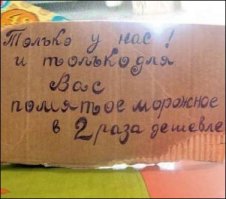 Только у нас!
и только для
Вас
помятое морожное
в 2 раза дешевле